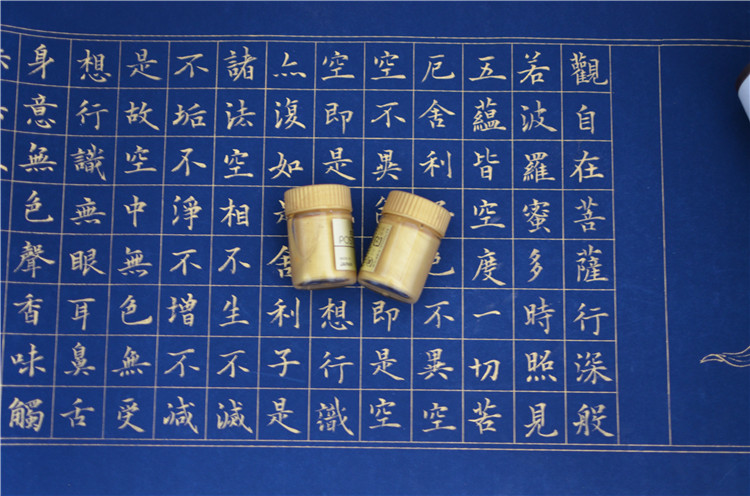 觀自在菩薩行深般
若波羅蜜多時照見
五蘊皆空度一切苦
厄舍利色不異空
空不異色即是空
空即是想行識
亦復如是舍利子是
諸法空相不生不滅
不垢不淨不增不減
是故空中無色無受
想行識無眼耳鼻舌
身意無色聲香味觸